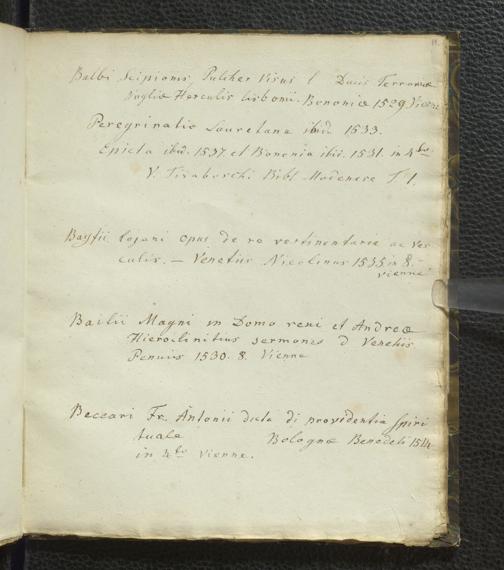 Balbi Scipionis Pulcher Visus l Ducis Ferrariæ
Herculis Bononiæ 1529 Vienne
Peregrinatio Lauretana ibid. 1533.
Epicta ibid. 1537 et Bononia ibid. 1531. in 4to
V. Tiraborchi Bibl. Modenese T 1.
Bayfii Lazari opus de re vestimentaria ac ves
culis. — Venetiis Nicolinus 1535 in 8.
vienne
Bailii Magni in Domo reni et Andreæ
Hierosolimitius sermones d Venetiis
1530. 8. Vienne
Beccari Fr. Antonii dicta di providentia Spiri
tuale Bologna Benedeti 1514
in 4to Vienne.